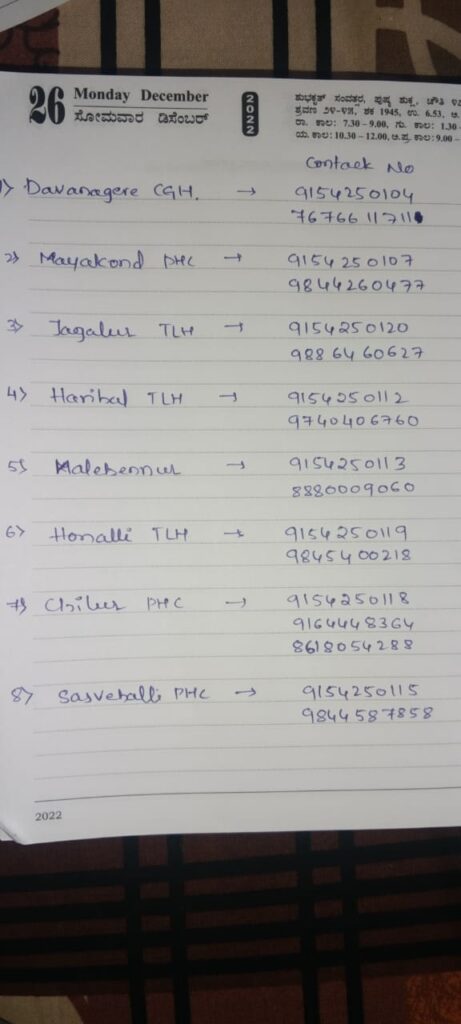 26 Monday December
ಸೋಮವಾರ ಡಿಸೆಂಬರ್
2022
ಶುಭಕೃತ್ ಸಂವತ್ಸರ, ಪುಷ್ಯ ಶುಕ್ಲ, ಚೌತಿ
ಶ್ರವಣ ಶಕ 1945, ಉ. 6.53, ಅ.
ರಾ. ಕಾಲ: 7.30 - 9.00, ಗು. ಕಾಲ: 1.30 -
ಯ. ಕಾಲ: 10.30 - 12.00, ಆ.ಪ್ರ. ಕಾಲ: 9.00 -
Contact No
1) Davanagere CGH. → 9154250104
7676611711
2) Mayakond PHC → 9154250107
9844260477
3) Jagalur TLH → 9154250120
9886460627
4) Harihal TLH → 9154250112
9740406760
5) Malebennur → 9154250113
8880009060
6) Honalli TLH → 9154250119
9845400218
7) Chilur PHC → 9154250118
9164448364
8618054288
8) Sasvehalli PHC → 9154250115
9844587858
2022